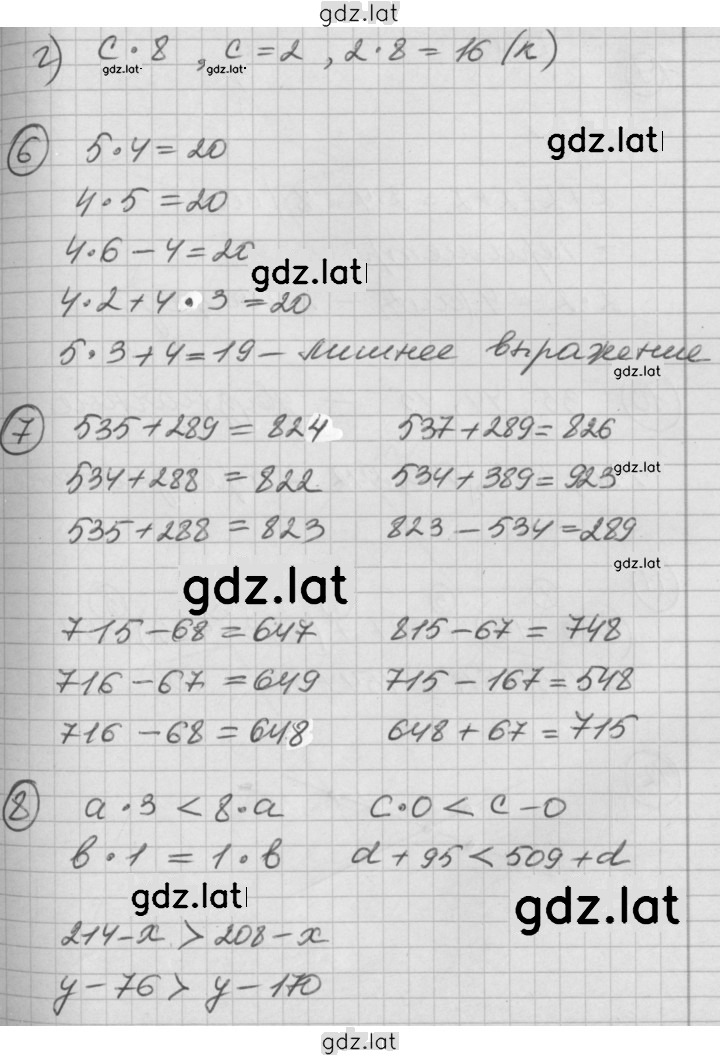 gdz.lat
г) c · 8 , c = 2 , 2 · 8 = 16 (к)
gdz.lat gdz.lat
6 5 · 4 = 20
gdz.lat
4 · 5 = 20
4 · 6 - 4 = 20
gdz.lat
4 · 2 + 4 · 3 = 20
5 · 3 + 4 = 19 - лишнее выражение
gdz.lat
7 535 + 289 = 824 537 + 289 = 826
534 + 288 = 822 534 + 389 = 923
gdz.lat
535 + 288 = 823 823 - 534 = 289
gdz.lat
gdz.lat
715 - 68 = 647 815 - 67 = 748
716 - 67 = 649 715 - 167 = 548
716 - 68 = 648 648 + 67 = 715
8 a · 3 < 8 · a c · 0 < c - 0
b · 1 = 1 · b d + 95 < 509 + d
gdz.lat
gdz.lat
214 - x > 208 - x
y - 76 > y - 170
gdz.lat